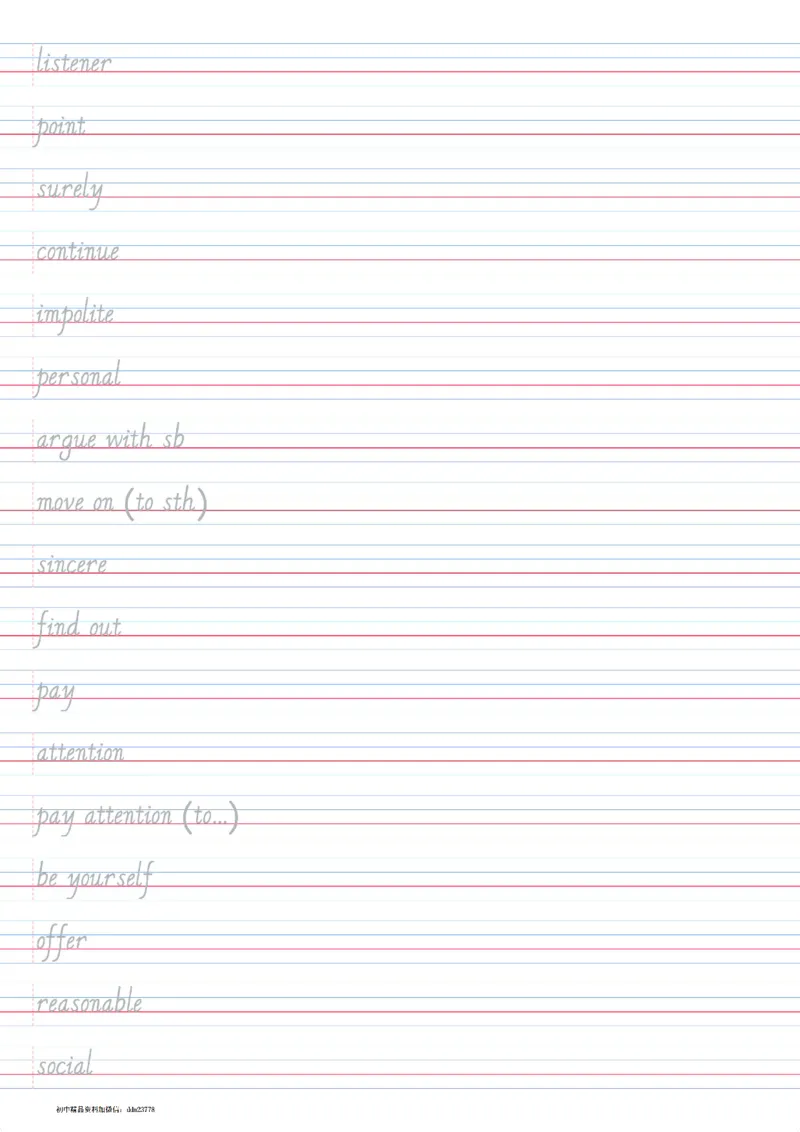 listener
point
surely
continue
impolite
personal
argue with sb
move on (to sth)
sincere
find out
pay
attention
pay attention (to...)
be yourself
offer
reasonable
social
初中精品资料加微信：ddm23778